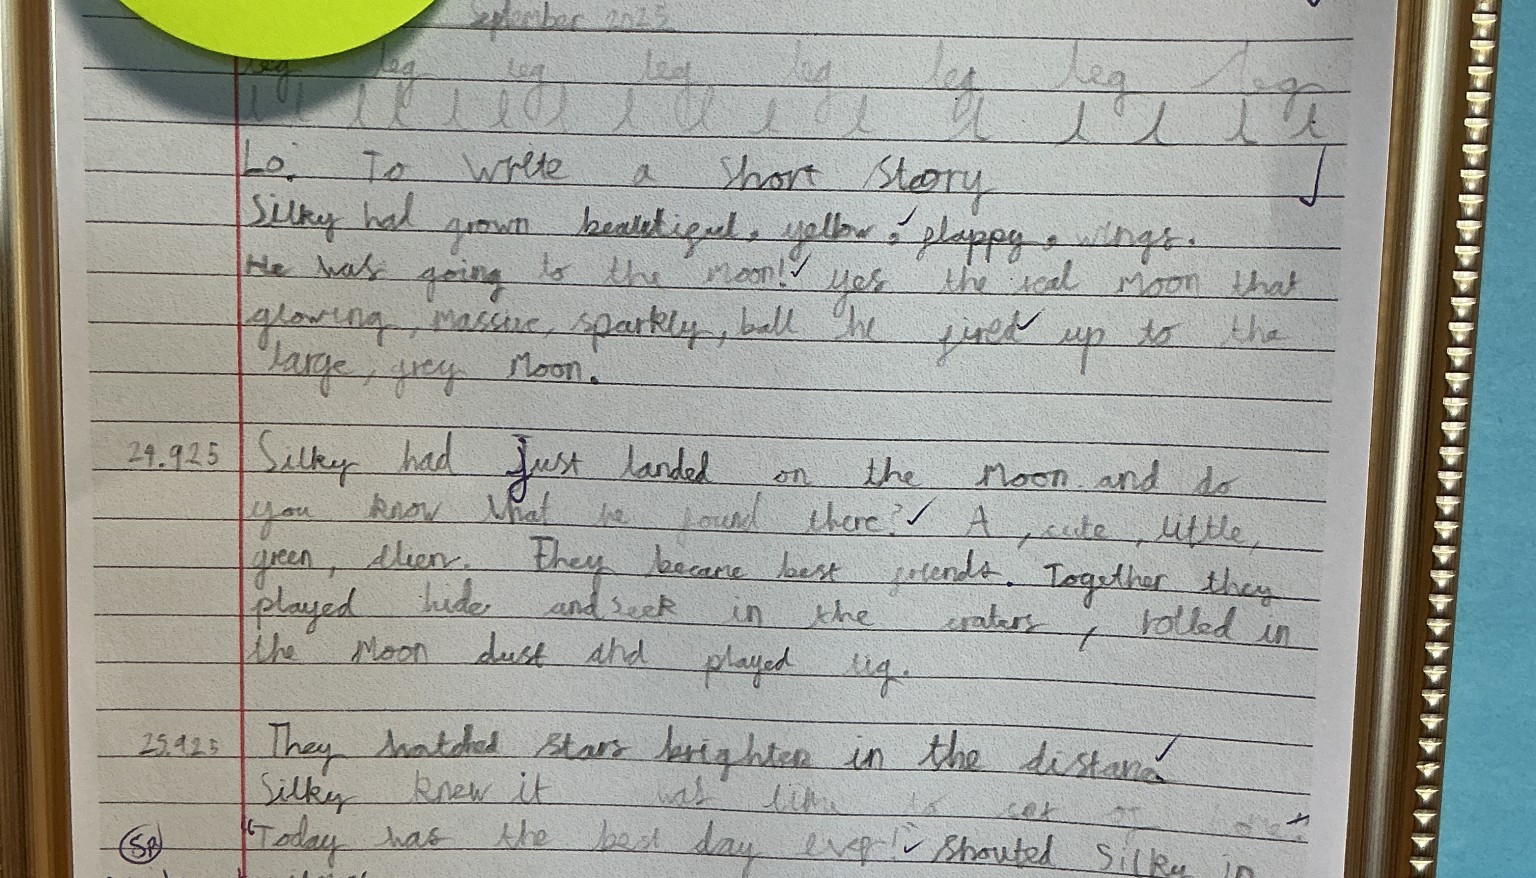 September 2025
leg leg leg leg leg leg leg leg
l l l l l l l l l l l l l l l l l
Lo: To write a short stoory
Silky had grown beautiful, yellow, flappy, wings.
He was going to the moon! yes the real Moon that
glowing, massive, sparkly, ball he fired up to the
large, grey Moon.
24.9.25 Silky had Just landed on the Moon and do
you know what he found there? A, cute, little,
green, alien. They became best friends. Together they
played hide and seek in the craters, rolled in
the Moon dust and played tig.
25.9.25 They watched stars brighten in the distance
Silky knew it was time to set of home.
SP "Today was the best day ever!" shouted Silky in